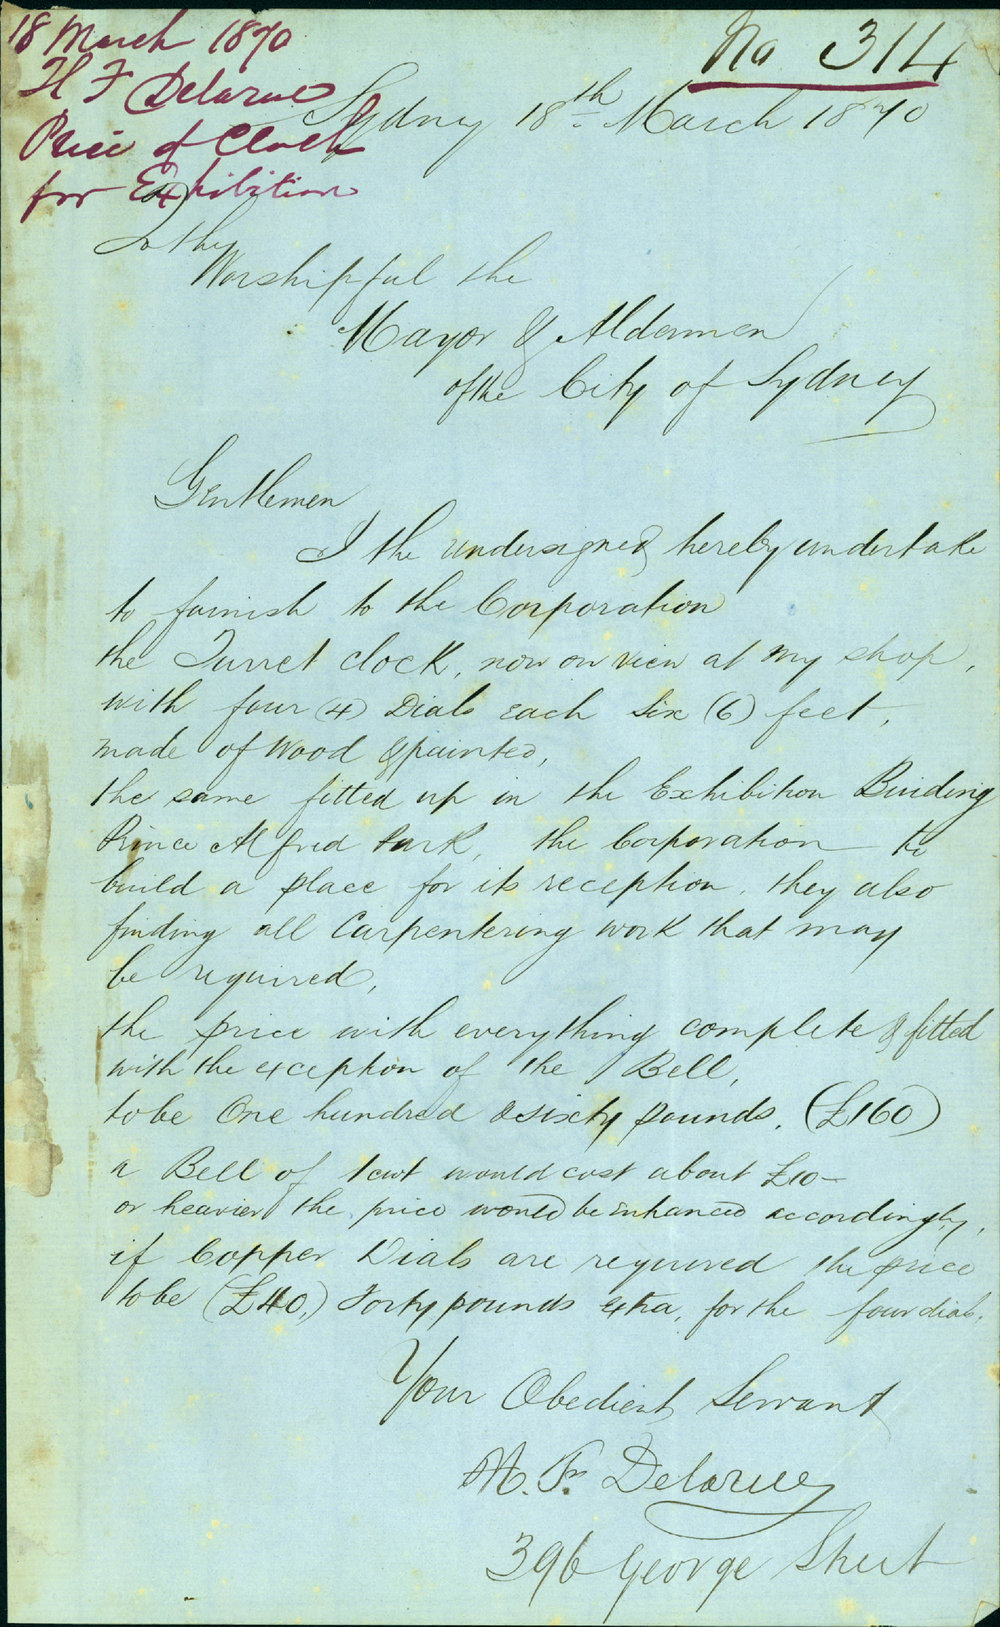 18 March 1870
H F Delarue
Price of Clock
for Exhibition
No 314
Sydney 18th March 1870
To the
Worshipful the
Mayor & Aldermen
of the City of Sydney
Gentlemen
I the undersigned hereby undertake
to furnish to the Corporation
the Turret clock, now on view at my shop,
with four (4) Dials each six (6) feet,
made of Wood & painted,
the same fitted up in the Exhibition Building
Prince Alfred Park, the Corporation to
build a place for its reception, they also
finding all Carpentering work that may
be required,
the price with everything complete & fitted
with the exception of the Bell,
to be One hundred & sixty pounds, (£160)
a Bell of 1 cwt would cost about £10–
or heavier the price would be enhanced accordingly,
if Copper Dials are required the price
to be (£40,) Forty pounds extra, for the four dials.
Your Obedient Servant
H. F. Delarue
396 George Street